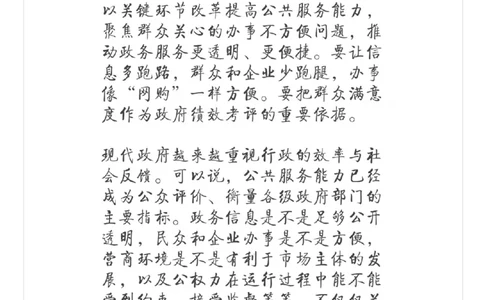 以关键环节改革提高公共服务能力，
聚焦群众关心的办事不方便问题，推
动政务服务更透明、更便捷。要让信
息多跑路，群众和企业少跑腿，办事
像“网购”一样方便。要把群众满意
度作为政府绩效考评的重要依据。
现代政府越来越重视行政的效率与社
会反馈。可以说，公共服务能力已经
成为公众评价、衡量各级政府部门的
主要指标。政务信息是不是足够公开
透明，民众和企业办事是不是方便，
营商环境是不是有利于市场主体的发
展，以及公权力在运行过程中能不能
受到约束、接受监督等等，不仅仅关